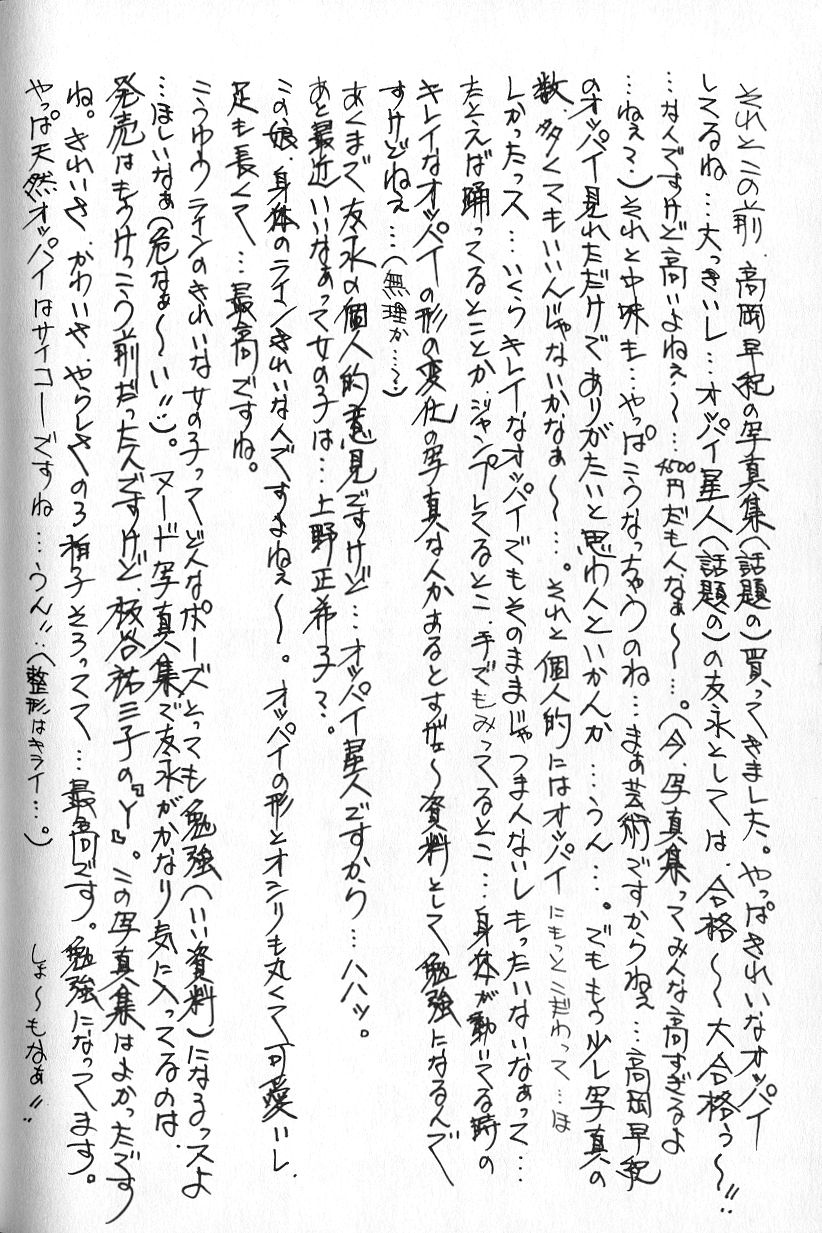 それとこの前、高岡早紀の写真集(話題の)買ってきました。やっぱきれいなオッパイ
してるね…大っきいし…オッパイ星人(話題の)の友永としては、合格〜〜大合格う〜〜!!
…なんですけど高いよねぇ〜〜…4500円だもんなぁ〜〜…。(今、写真集ってみんな高すぎるよ
…ねぇ?)それと中味も…やっぱこうなっちゃうのね…まぁ芸術ですからねぇ…高岡早紀
のオッパイ見れただけでありがたいと思わんといかんか…うん…。でももう少し写真の
数、多くてもいいんじゃないかなぁ〜〜…。それと個人的にはオッパイにもっとこだわって…ほ
しかったっス…いくらキレイなオッパイでもそのままじゃつまんないしもったいないなぁって…
たとえば踊ってるとことか、ジャンプしてるとこ、手でもみってるとこ…身体が動いてる時の
キレイなオッパイの形の変化の写真なんかあるとすげェ〜資料として勉強になるんで
すけどねぇ…(無理か…?)
あくまで友永の個人的意見ですけど…オッパイ星人ですから…ハハッ。
あと最近いいなぁって女の子は…上野正希子?。
この娘、身体のラインきれいなんですよねぇ〜〜。オッパイの形とオシリも丸くて可愛いし、
足も長くて…最高ですね。
こうゆうラインのきれいな女の子ってどんなポーズとっても勉強(いい資料)になるっスよ
…ほしいなぁ(危なぁ〜〜い!!)。ヌード写真集で友永がかなり気に入ってるのは、
発売はもうけっこう前だったんですけど、板谷祐三子の『Y』。この写真集はよかったです
ね。きれいさ、かわいさ、やらしさの3拍子そろってて…最高です。勉強になってます。
やっぱ天然オッパイはサイコーですね…うん!!…(整形はキライ…。)
しょ〜もなぁ!!